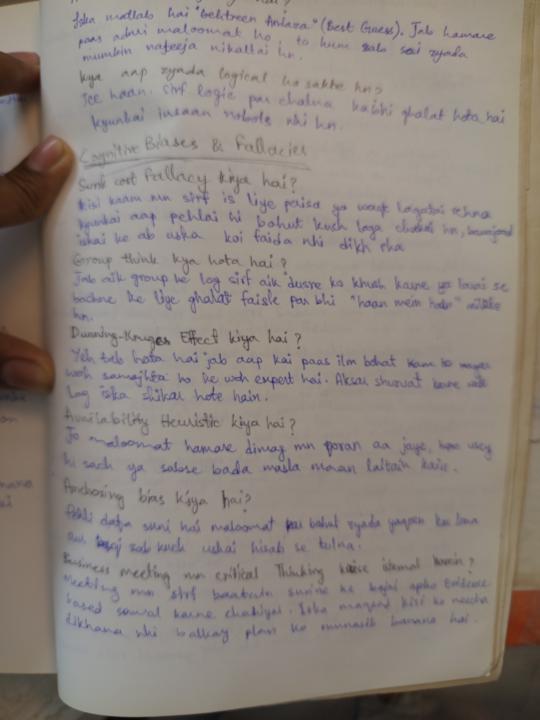 Iska matlab hai "behtreen Andaza" (Best Guess). Jab hamare
paas adhri maloomat ho, to hum sab se ryada
mumkin nateeja nikaltai hn.
Kya aap ryada logical ho sakte hn?
Jee haan. Sirf logic par chalna kabhi ghalat hota hai
kyunkai insaan robots nhi hn.
Cognitive Biases & Fallacies
Sunk cost Fallacy kiya hai?
Kisi kaam mn sirf is liye paisa ya waqt lagatai rehna
kyunkai aap pehlai hi bahut kuch laga chukai hn, bawajood
iskai ke ab uska koi faida nhi dikh rha
Group think kya hota hai?
Jab aik group ke log sirf aik dusre ko khush karne ya larai se
bachne ke liye ghalat faisle par bhi "haan mein haan"
hn.
Dunning-Kruger Effect kiya hai?
Yeh tab hota hai jab aap kai paas ilm bohat kam ho magar
woh samajhta ho ke woh expert hai. Aksar shuruat karne wale
log iska shikar hote hain.
Availability Heuristic kiya hai?
Jo maloomat hamare dimag mn foran aa jaye, hum usey
hi sach ya sabse bada masla maan laitain hain.
Anchoring bias kiya hai?
Pehli dafa suni hui maloomat par bohut ryada yaqeen kar lena
aur sab kuch uskai hisab se tolna.
Business meeting mn critical Thinking kaise istemal karein?
Meeting mn sirf baatein sunne ke bajai apko Evidence
based sawal karne chahiye. Iska maqsad kisi ko neecha
dikhana nhi balkay plan ko munasib banana hai.